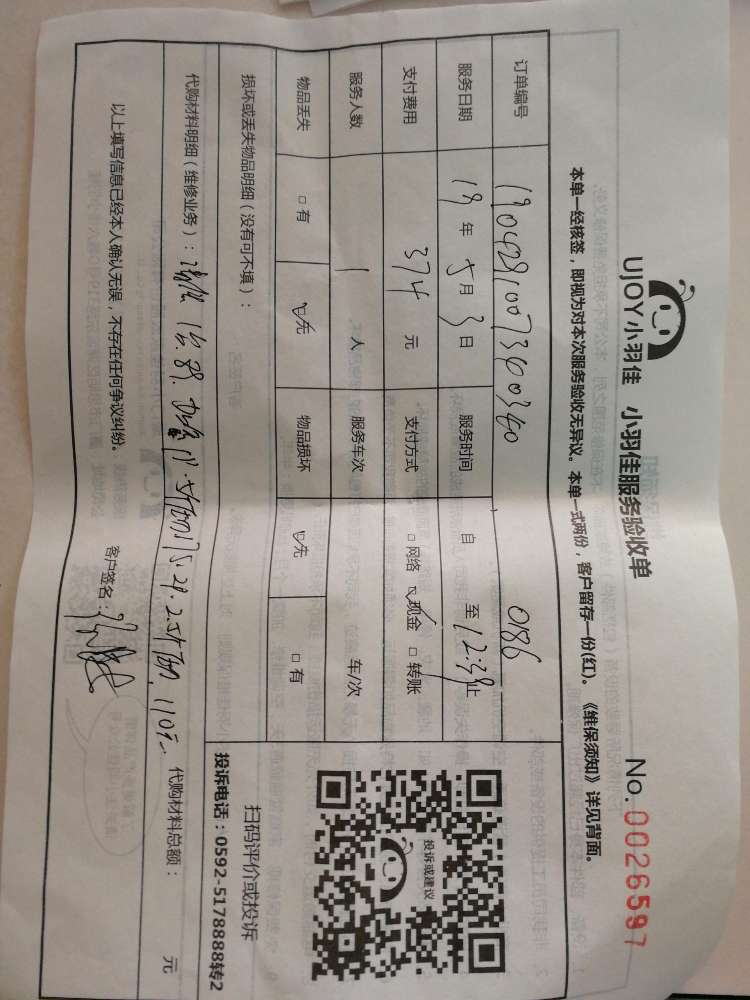 UJOY小羽佳 小羽佳服务验收单
No. 0026597
本单一经核签，即视为对本次服务验收无异议。本单一式两份，客户留存一份(红)。《维保须知》详见背面。
订单编号 0186
服务日期 19年5月3日 服务时间 自 至12:39止
支付费用 374 元 支付方式 □网络 ☑现金 □转账
服务人数 1 人 服务车次 车/次
物品丢失 □有 ☑无 物品损坏 ☑无 □有
损坏或丢失物品明细（没有可不填）：
代购材料明细（维修业务）： 110元 代购材料总额： 元
以上填写信息已经本人确认无误，不存在任何争议纠纷。 客户签名：
投诉或建议
扫码评价或投诉
投诉电话：0592-5178888转2